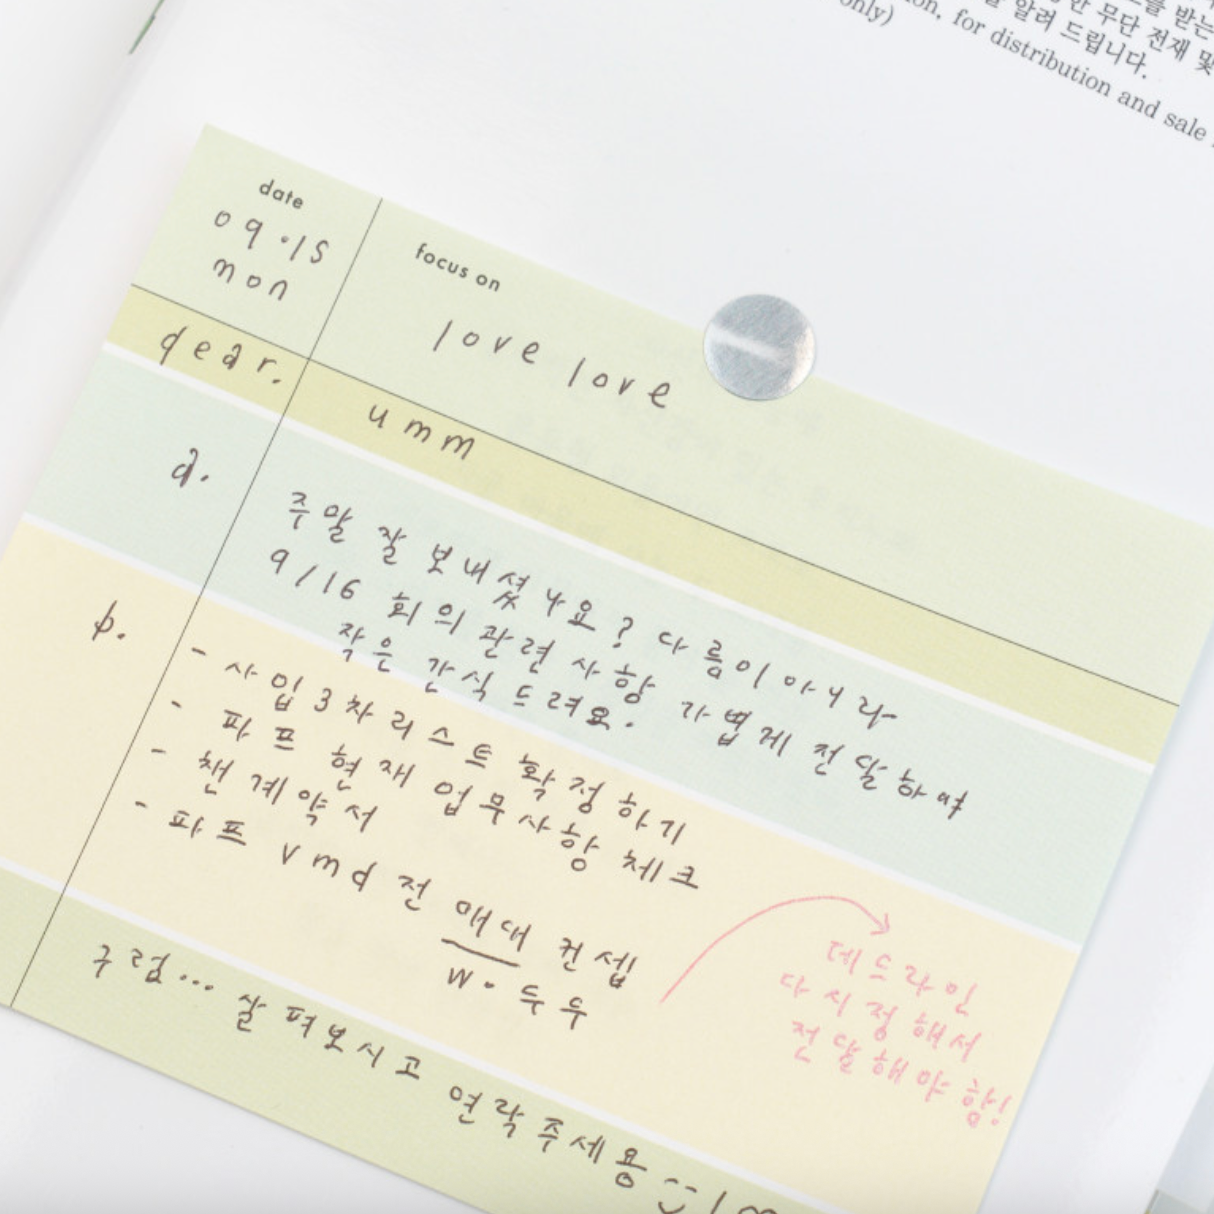 를 받는
한 무단 전재 및
을 알려 드립니다.
on, for distribution and sale
only)
date
09.15
mon
focus on
love love
dear.
umm
a.
주말 잘 보내셨나요? 다름이 아니라
9/16 회의 관련 사항 가볍게 전달하여
작은 간식 드려요.
p.
- 사입 3차 리스트 확정하기
- 파프 현재 업무사항 체크
- 챈 계약서
- 파프 vmd 전 매대 컨셉
w. 두두
데드라인
다시 정해서
전달해야 함!
구럼... 살펴보시고 연락주세용